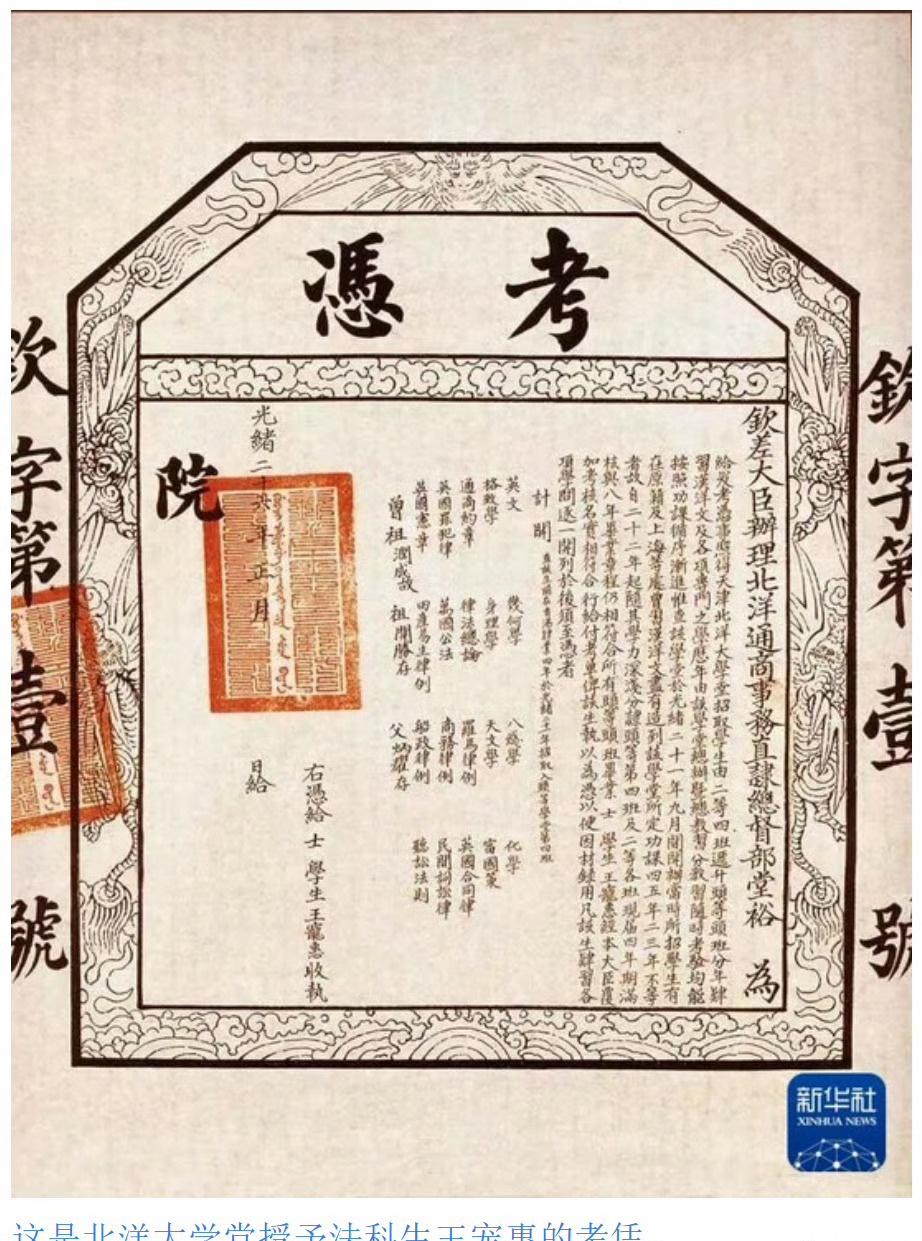 考憑
欽字第壹號
欽差大臣辦理北洋通商事務直隸總督部堂裕 為
給發考憑事照得天津北洋大學堂招取學生由二等四班遞升頭等頭班分年肄
習漢洋文及各項專門之學歷年由該學堂總辦暨總教習分教習隨時考驗均能
按照功課循序漸進惟查該學堂於光緒二十一年九月開辦當時所招學生有
在原籍及上海等處曾習漢洋文盡有造到該學堂所定功課四五年二三年不等
者故自二十二年起隨其學力深淺分隸頭等第四班及二等各班現屆四年期滿
核與八年畢業章程仍相符合所有頭等頭班畢業 士 學生王寵惠經本大臣覆
加考核名實相符合行給付考單俾該生執以為憑以便因材錄用凡該生肄習各
項學問逐一開列於後須至憑者
計開
英文 幾何學 八線學 化學
格致學 身理學 天文學 富國策
通商約章 律法總論 羅馬律例 英國合同律
英國罪犯律 萬國公法 商務律例 民間詞訟律
英國憲章 田產易主律例 船政律例 聽訟法則
曾祖潤成故 祖開勝存 父炳耀存
右憑給 士 學生王寵惠收執
光緒二十六年正月 日給
院
欽字第壹號
新华社
XINHUA NEWS
这是北洋大学堂授予法科生王宠惠的考凭